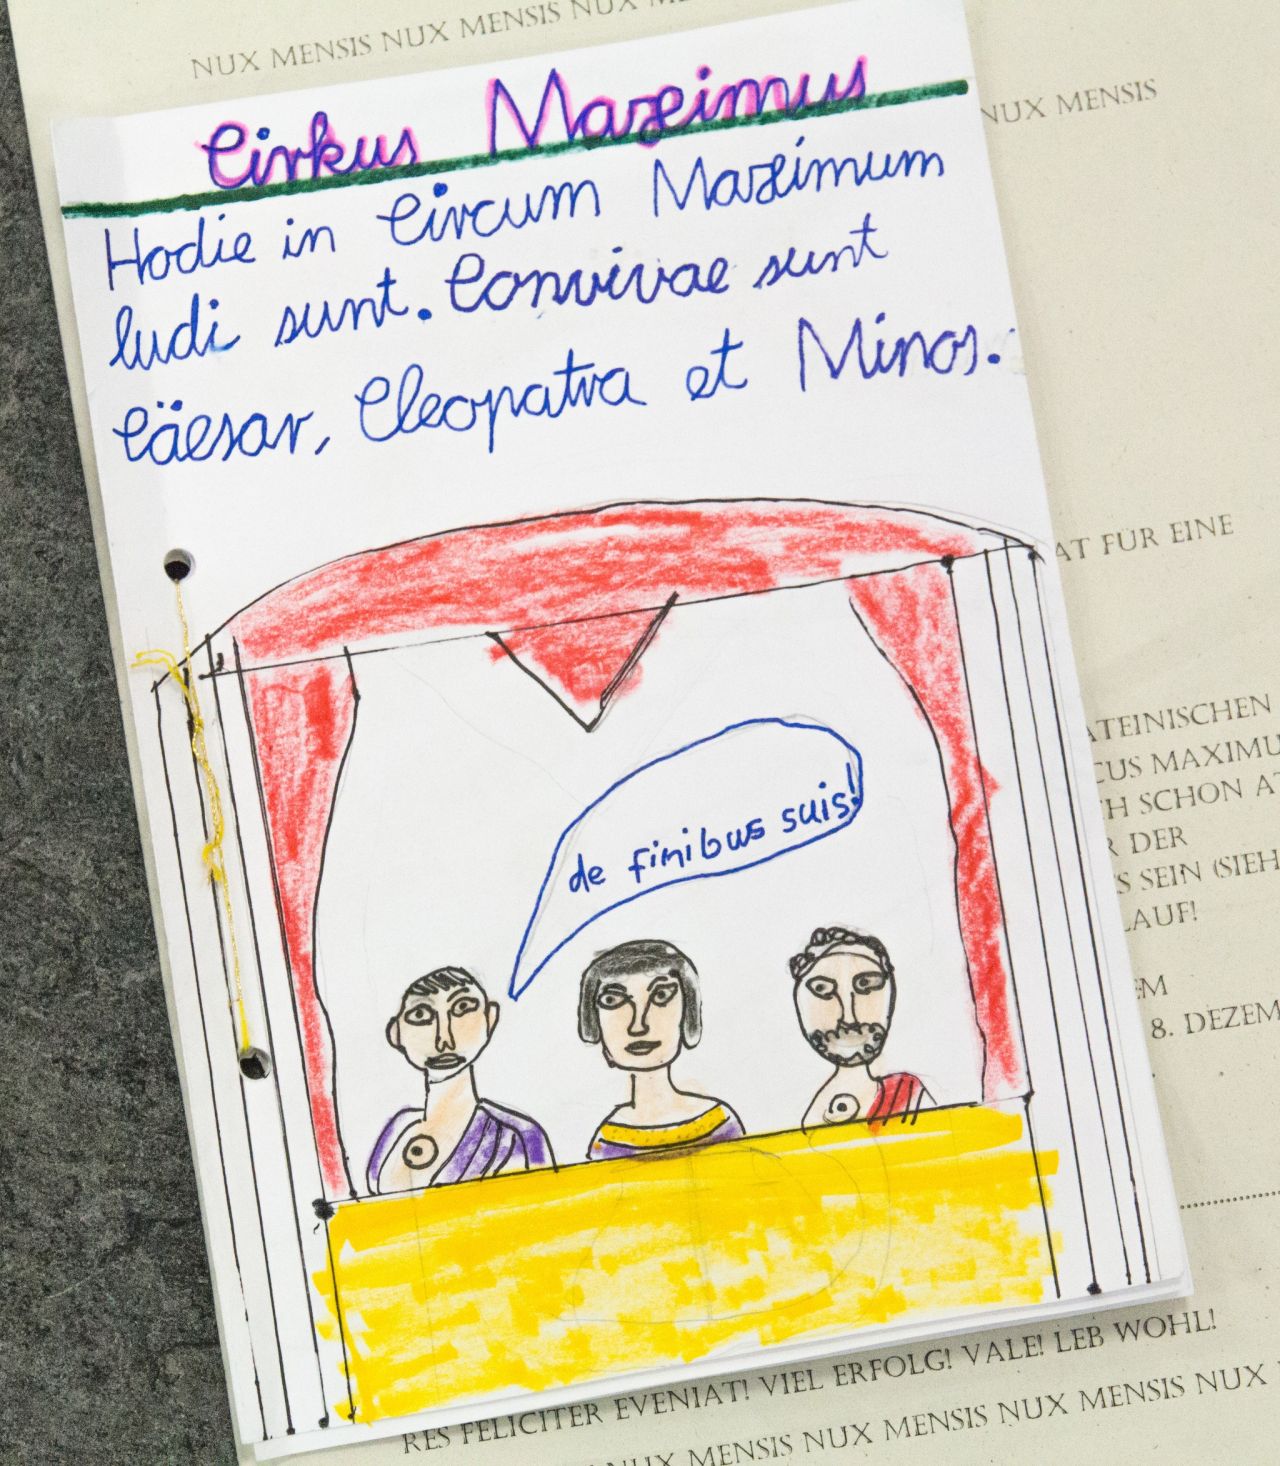 NUX MENSIS NUX MENSIS NUX
NUX MENSIS
Cirkus Maximus
Hodie in Circum Maximum
ludi sunt. Convivae sunt
Cäesar, Cleopatra et Minos.
AT FÜR EINE
ATEINISCHEN
CUS MAXIMU
CH SCHON AT
R DER
S SEIN (SIEH
LAUF!
EM
8. DEZEM
de finibus suis!
RES FELICITER EVENIAT! VIEL ERFOLG! VALE! LEB WOHL!
NUX MENSIS NUX MENSIS NUX MENSIS NUX